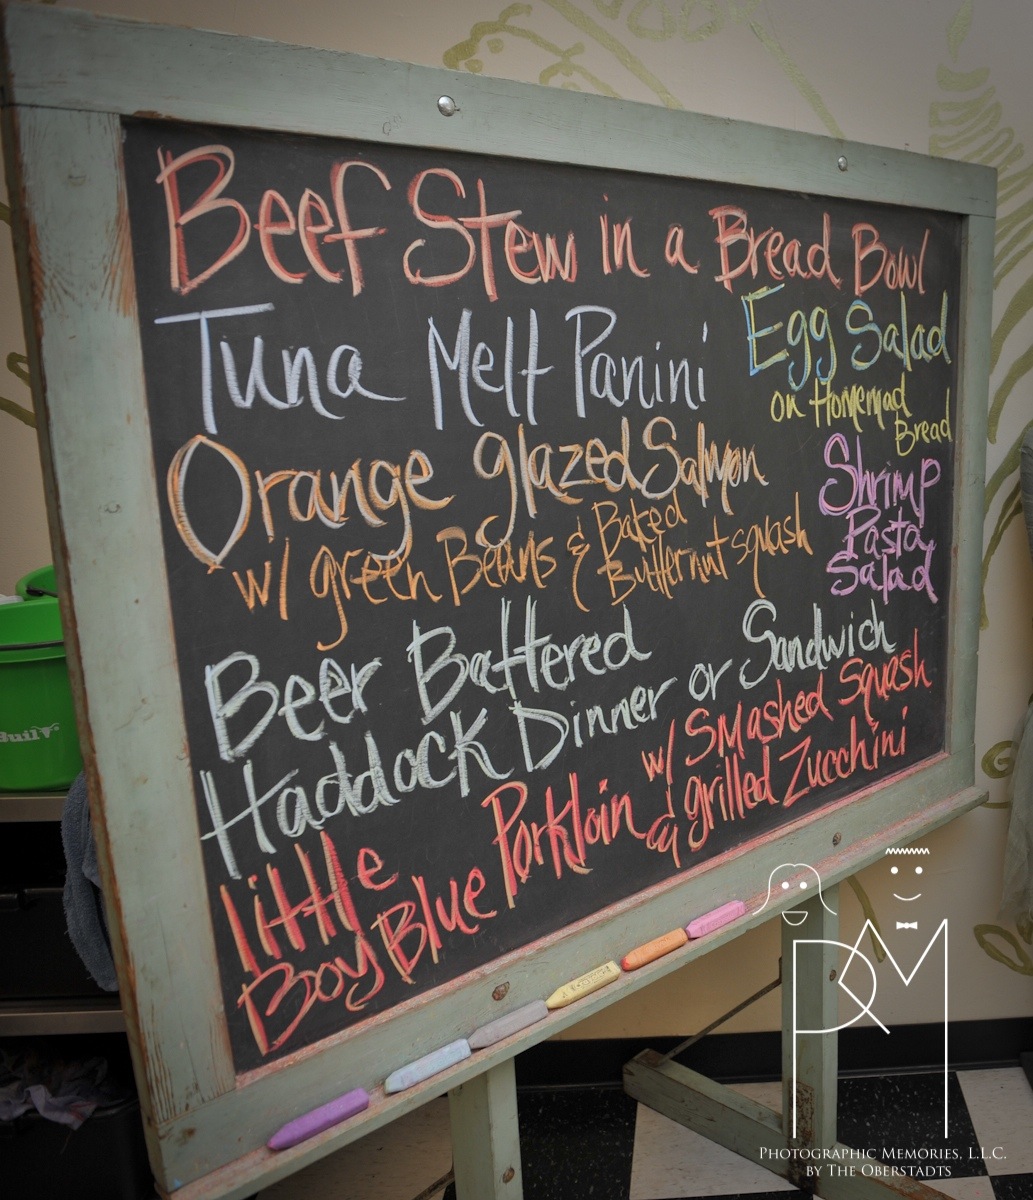 Beef Stew in a Bread Bowl
Tuna Melt Panini
Egg Salad
on Homemad
Bread
Orange glazed Salmon
w/ green Beans & Baked
Butternut squash
Shrimp
Pasta
Salad
Beer Battered
Haddock Dinner or Sandwich
little
Boy Blue Porkloin w/ Smashed Squash
& grilled Zucchini
PHOTOGRAPHIC MEMORIES, L.L.C.
BY THE OBERSTADTS